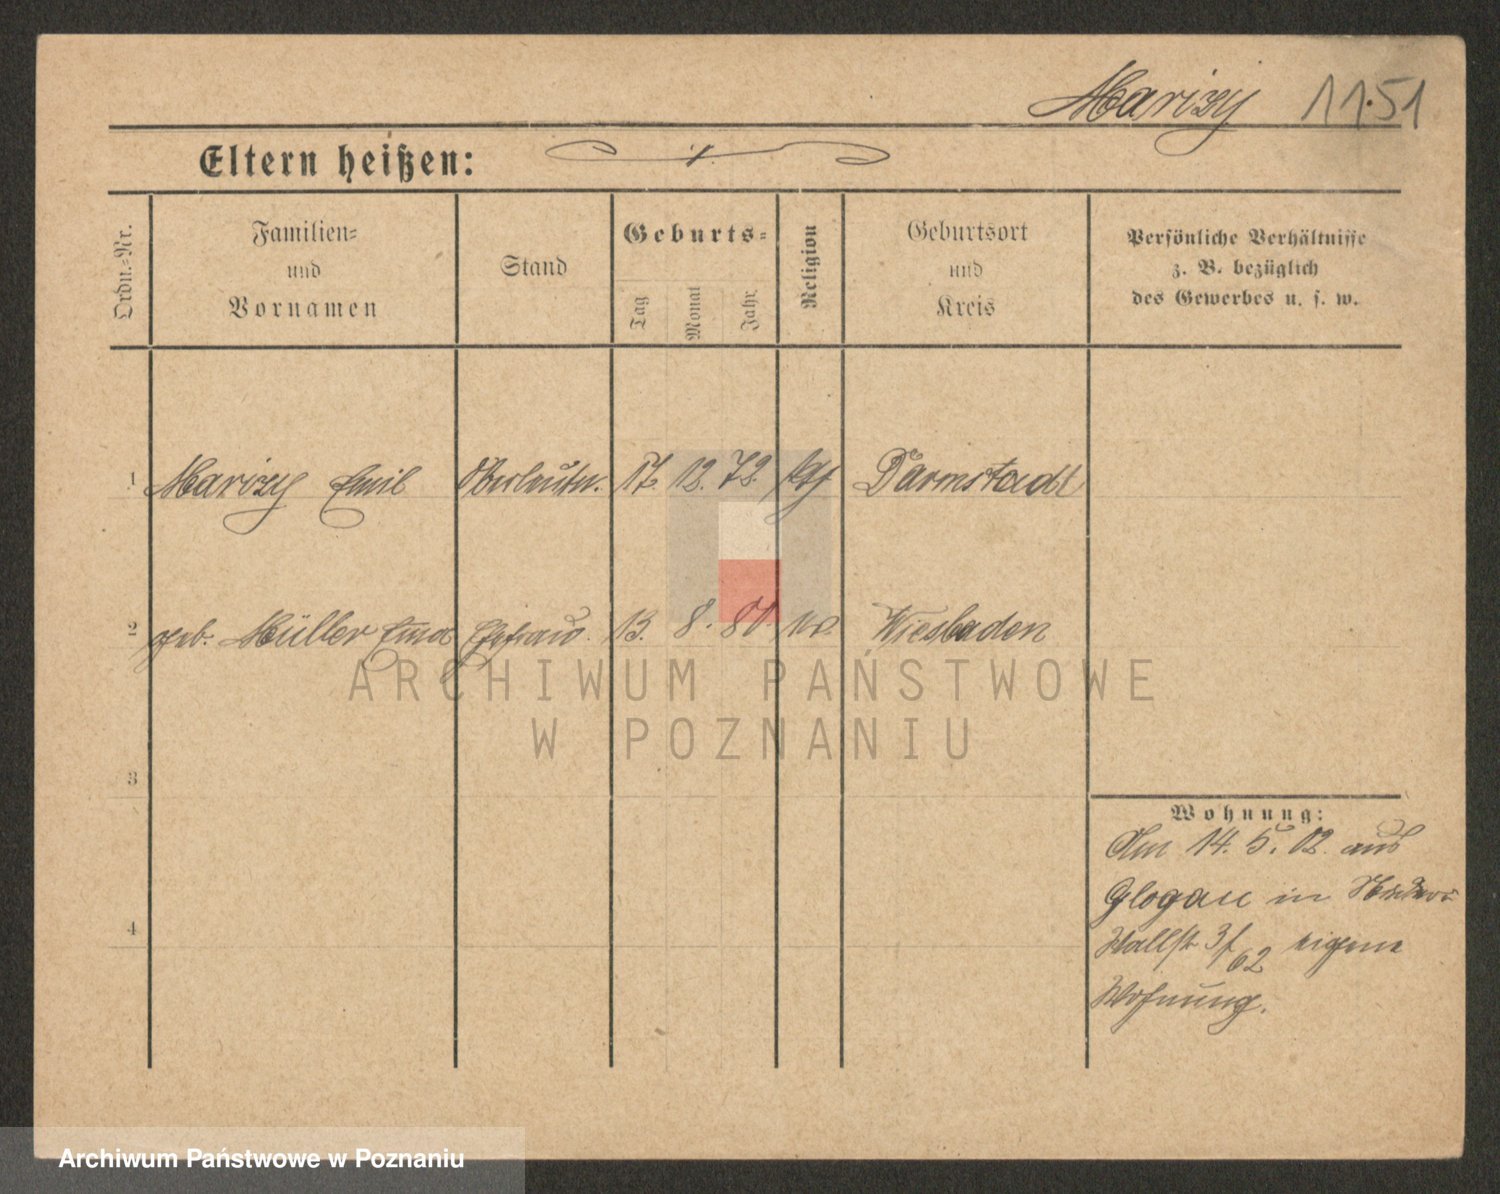 Marizy 11.51
Eltern heißen:
Ordn.-Nr.
Familien-
und
Vornamen
Stand
Geburts-
Tag
Monat
Jahr
Religion
Geburtsort
und
Kreis
Persönliche Verhältnisse
z. B. bezüglich
des Gewerbes u. s. w.
1 Marizy Emil Oberleutn. 17. 12. 72. Darmstadt
2 geb. Müller Ema Ehefrau. 13. 8. 80. Wiesbaden
3
4
Wohnung:
Am 14. 5. 02. aus
Glogau in
Wallstr 3/62 eigene
Wohnung.
ARCHIWUM PAŃSTWOWE
W POZNANIU
Archiwum Państwowe w Poznaniu